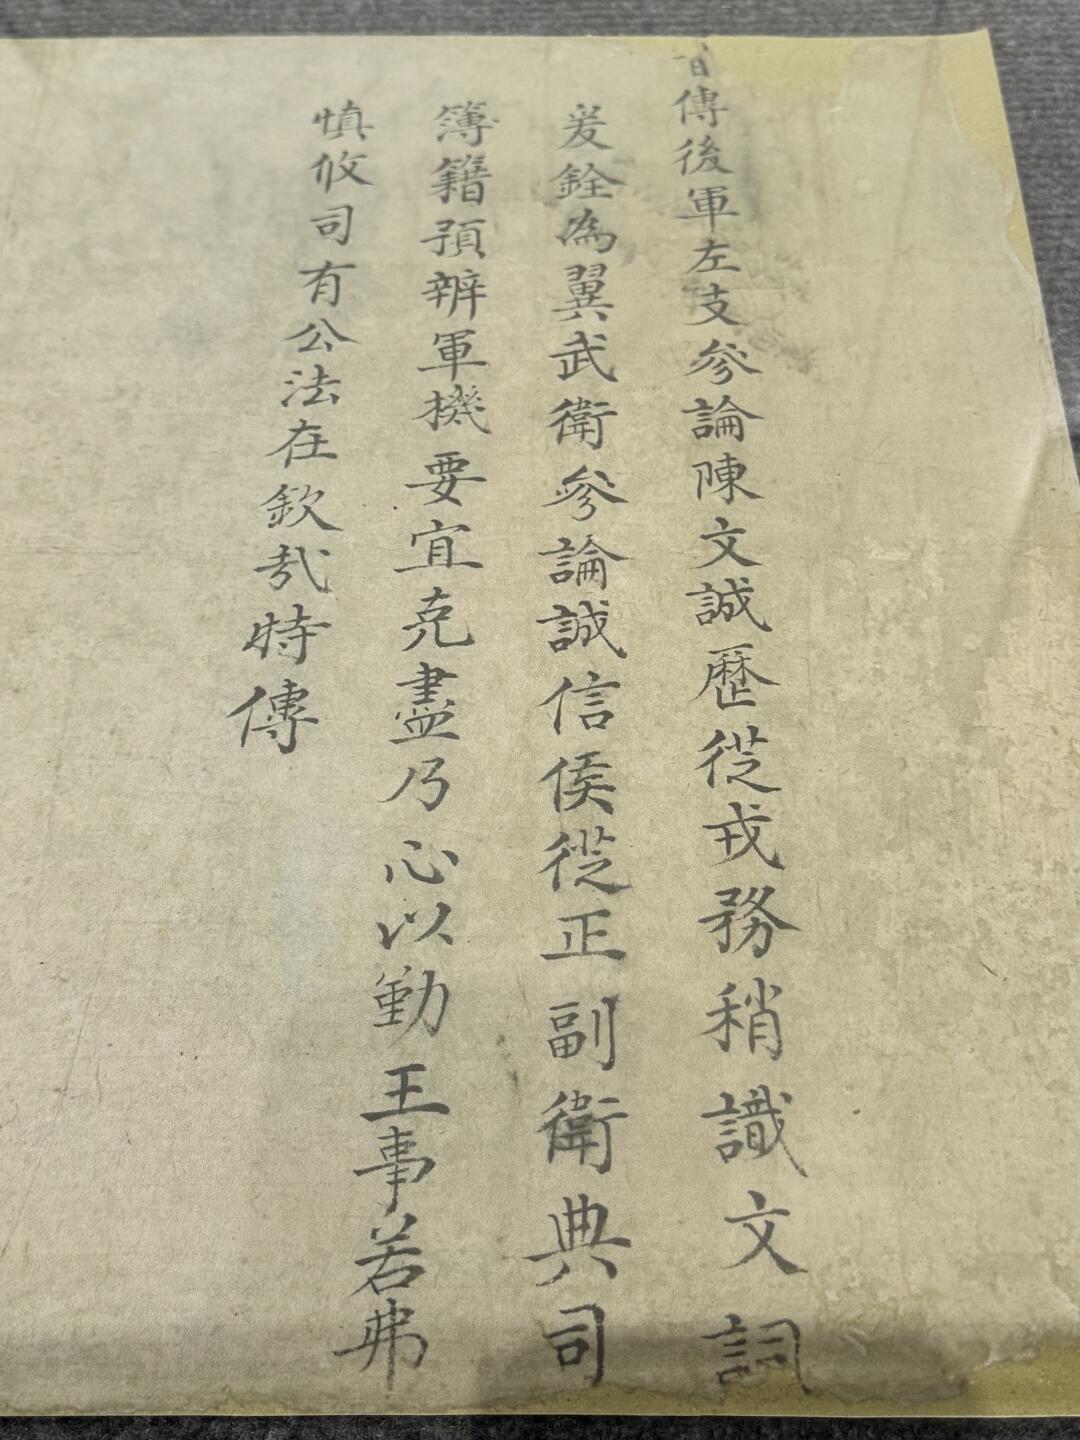 旨傳後軍左支參論陳文誠歷從戎務稍識文詞
爰銓為翼武衛參論誠信侯從正副衛典司
簿籍預辦軍機要宜克盡乃心以勤王事若弗
慎攸司有公法在欽哉特傳